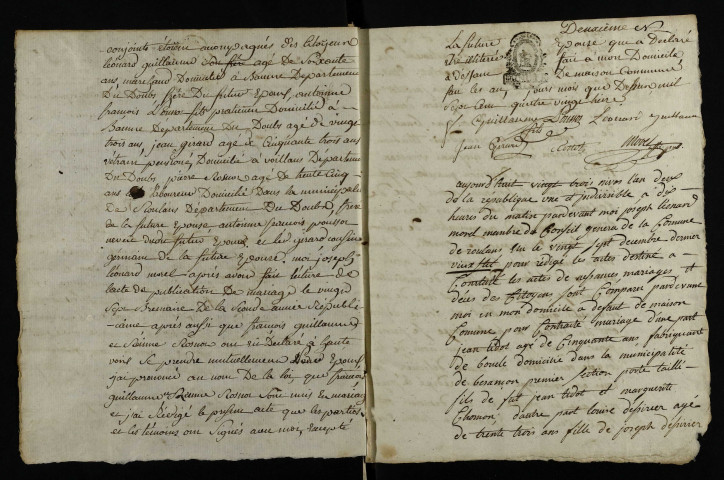 conjoints étoient accompagnés des Citoyens
léonard guillaume agé de Soixante
ans, marchand Domicilié a Baume Département
Du Doubs père Du futur Epoux, antoinne
françois pratiticien Domicilié a
Baume Département du Doubs agé de vingt
trois ans, jean girard agé de Cinquante trois ans
vétéran pensioné Domicilié a voillans Département
Du Doubs, pierre agé de trente Cinq
ans laboureur Domicilié Dans la municipalité
de Roulans Département Du Doubs, frère
de la future Epouse antoinne françois
neveu dudit futur Epoux et led girard cousin
germain de la future Epouse, moi joseph
léonard morel après avoir fait lecture de
lacte de publication De mariage le vingt
Sept Brumaire De la Seconde année Républi-
caine après aussi que françois guillaume
et Jeanne ont eu Déclaré a haute
voix Se prendre mutuellement pour Epoux,
jai prononcé au nom De la loi, que françois
guillaume et Jeanne Sont unis En mariage
et j'ai Rédigé le présent acte que les parties
et les témoins ont Signés avec moi, Excepté
Deuxième
La future Epouse qui a Déclaré
Etre illitérée fait a mon Domicile
a deffaut De maison Commune
les an jours mois que Dessus mil
Sept Cent quatre vingt treize
Guillaume Léonard Guillaume
jean Girard Morel
aujourd'hui vingt trois nivos l'an deux
de la république une et indivisible a dix
heures du matin pardevant moi joseph léonard
morel membre du Conseil general de la Commune
de roulans Elu le vingt Sept decembre dernier
vieux Stil pour rédigé les actes destiné a
Constaté les actes de naissances mariages et
déces des Citoyens Sont Comparu pardevant
moi en mon domicile a defaut de maison
Comune pour Contracté mariage d'une part
jean tidot agé de Cinquante ans fabriquant
de boucle domicilié dans la municipalité
de besançon premier Section porte taillé
fils de fut jean tidot et marguerite
Chomon; dautre part louise dépirier agé
de trente trois ans fille de joseph dépirier